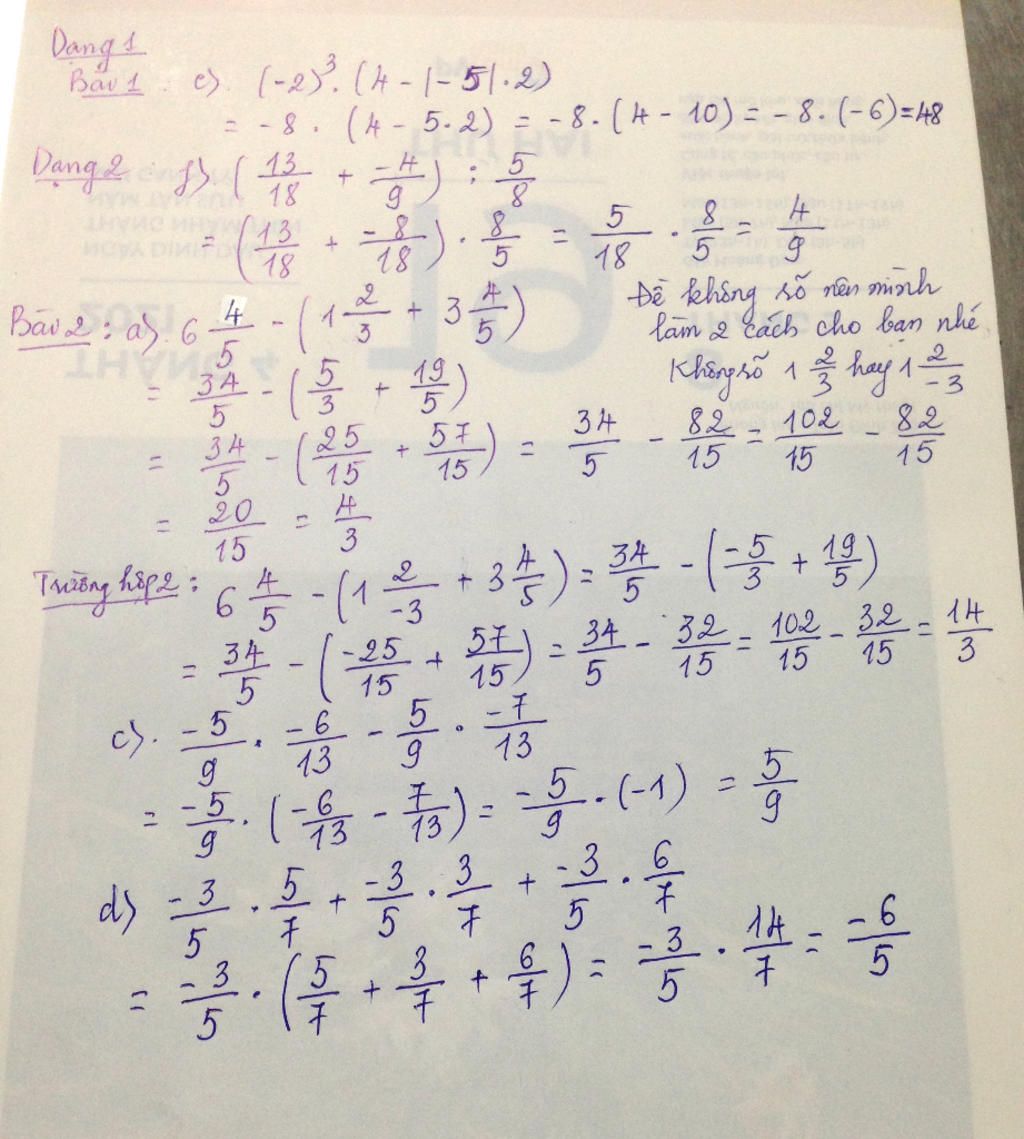 Dạng 1
Bài 1 e). (-2)³. (4 - |-5|.2)
= -8 . (4 - 5.2) = -8. (4 - 10) = -8. (-6) = 48
Dạng 2 f) (13/18 + -4/9) : 5/8
= (13/18 + -8/18) . 8/5 = 5/18 . 8/5 = 4/9
Bài 2: a). 6 4/5 - (1 2/3 + 3 4/5)
Đề không rõ nên mình
làm 2 cách cho bạn nhé
Không rõ 1 2/3 hay 1 2/-3
= 34/5 - (5/3 + 19/5)
= 34/5 - (25/15 + 57/15) = 34/5 - 82/15 = 102/15 - 82/15
= 20/15 = 4/3
Trường hợp 2: 6 4/5 - (1 2/-3 + 3 4/5) = 34/5 - (-5/3 + 19/5)
= 34/5 - (-25/15 + 57/15) = 34/5 - 32/15 = 102/15 - 32/15 = 14/3
c). -5/9 . -6/13 - 5/9 . -7/13
= -5/9 . (-6/13 - 7/13) = -5/9 . (-1) = 5/9
d) -3/5 . 5/7 + -3/5 . 3/7 + -3/5 . 6/7
= -3/5 . (5/7 + 3/7 + 6/7) = -3/5 . 14/7 = -6/5
THỨ HAI
NĂM TÂN SỬU
THÁNG NHÂM THÌN
16
2021
THÁNG 4